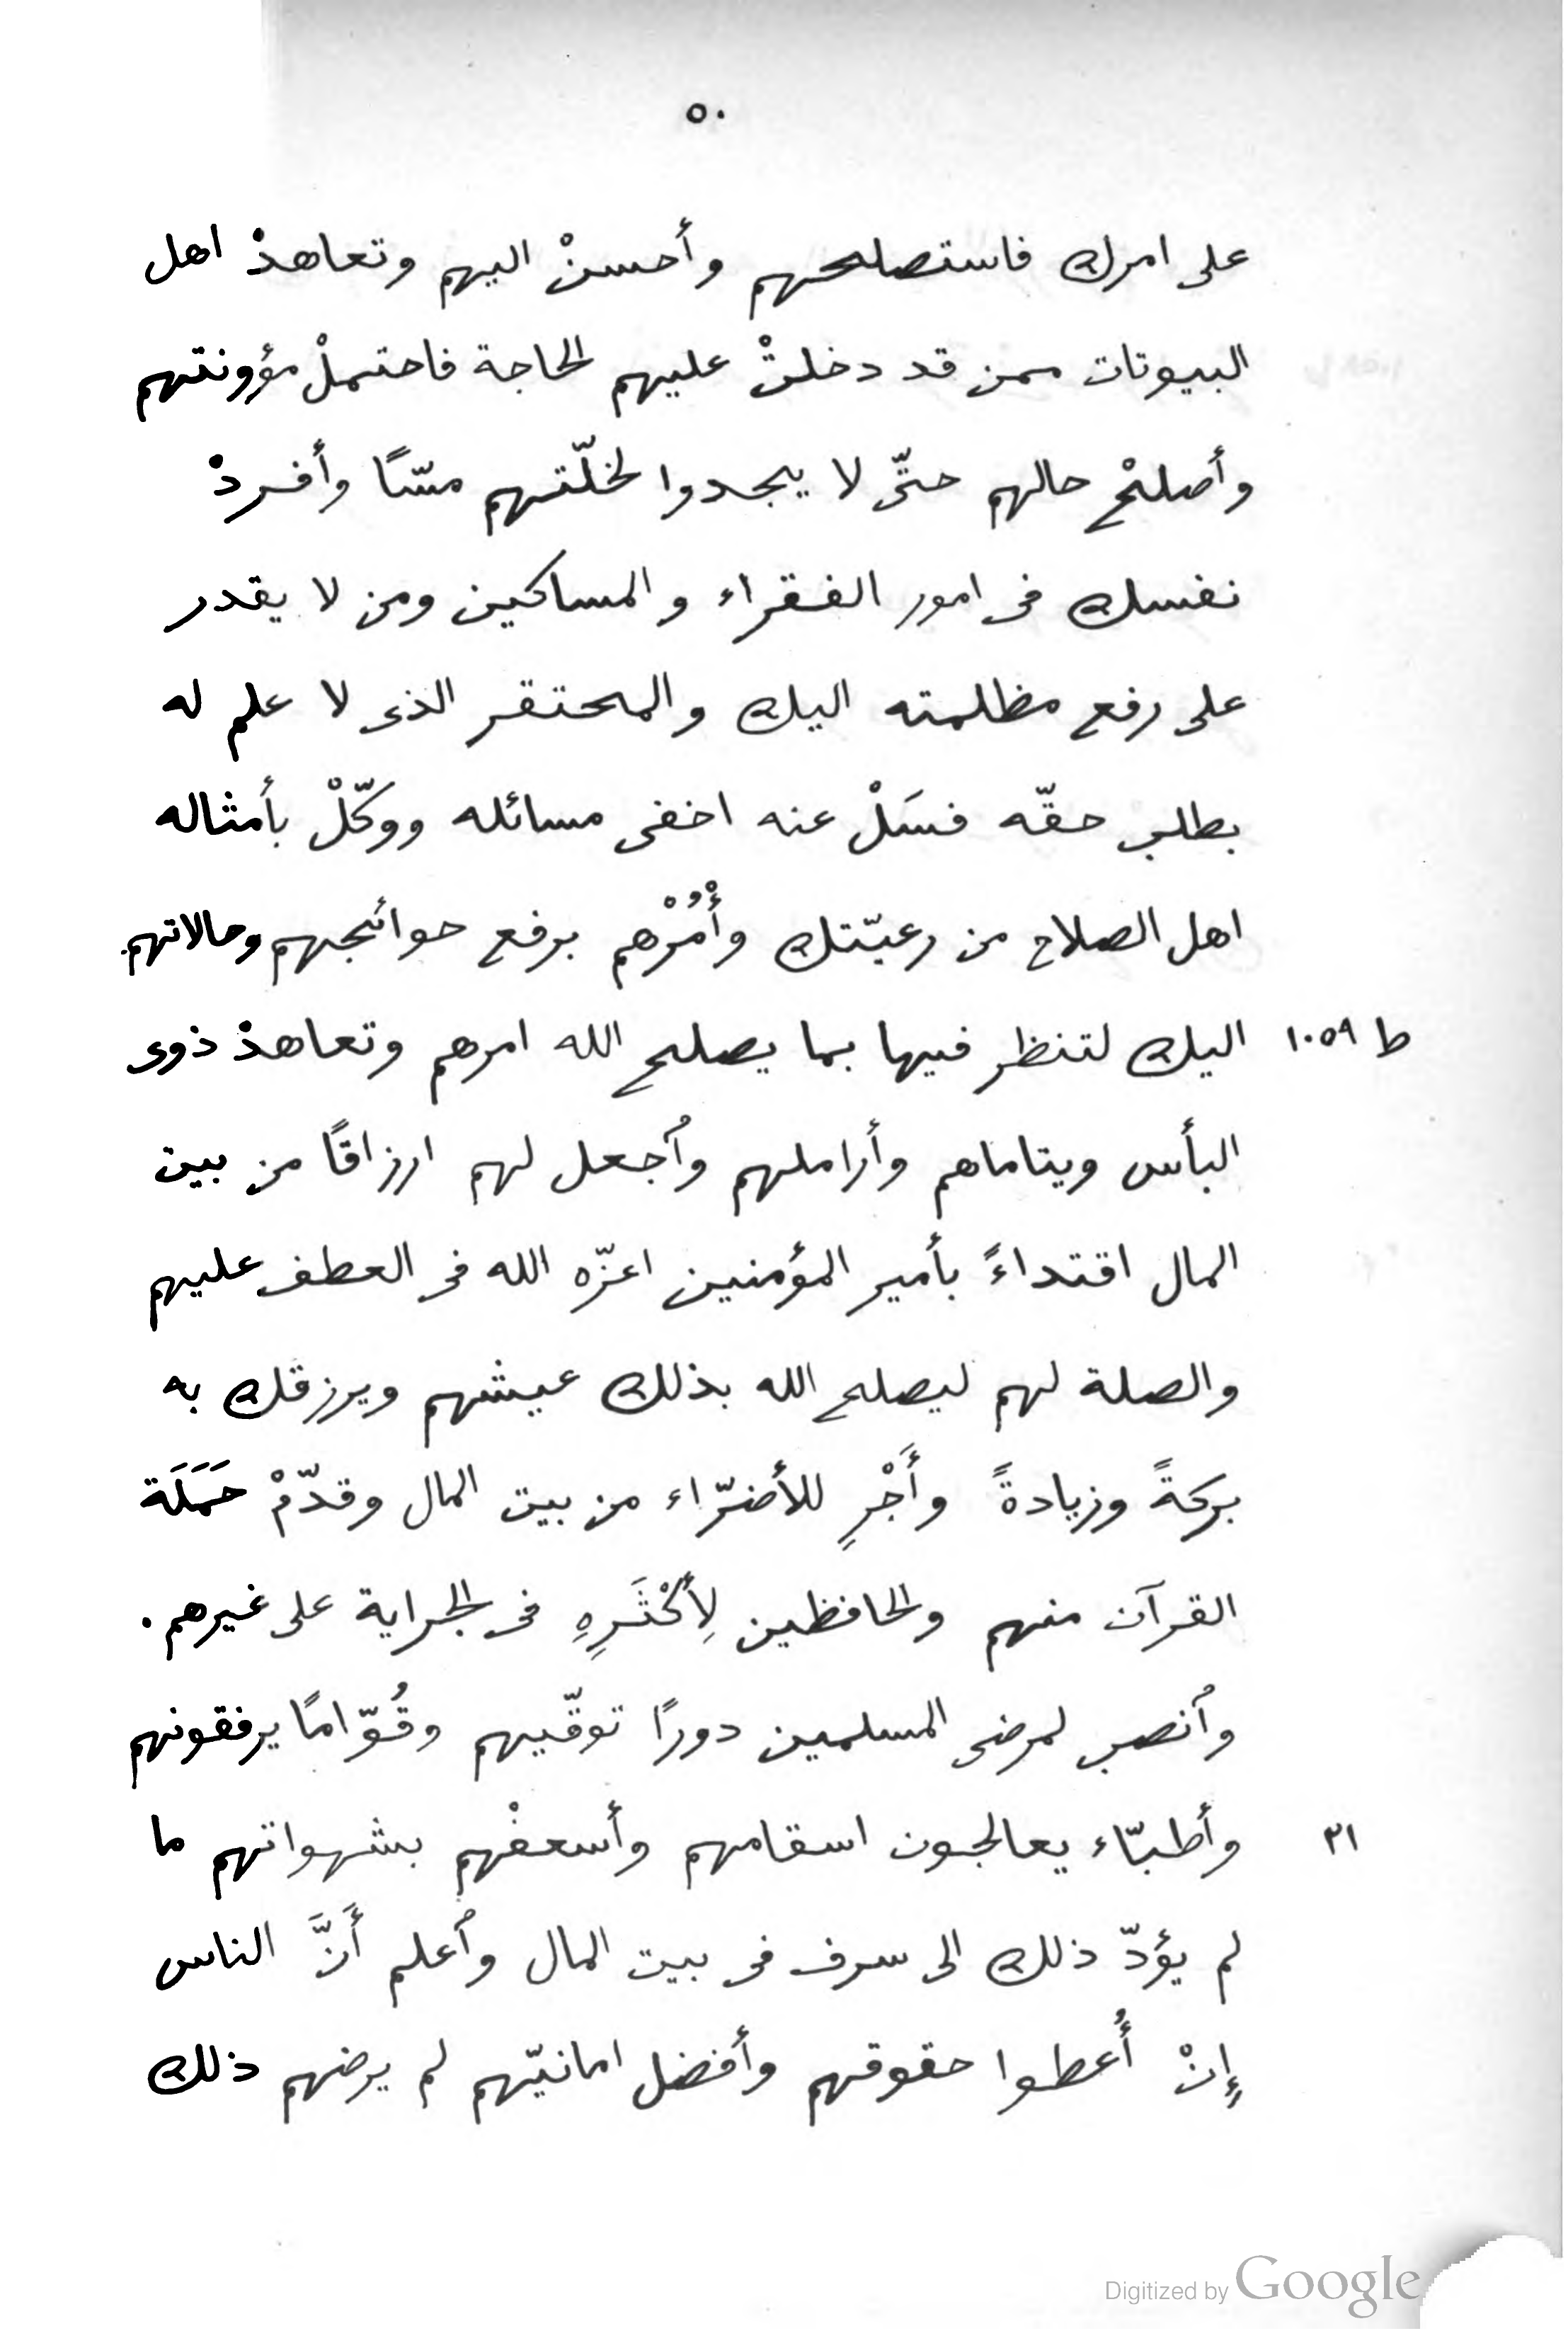 ٥٠
على امرك فاستصلحهم وأحسنْ اليهم وتعاهدْ اهل
البيوتات ممن قد دخلتْ عليهم الحاجة فاحتملْ مؤونتهم
وأصلحْ حالهم حتّى لا يجدوا لخلّتهم مسّا وأفردْ
نفسك فى امور الفقراء والمساكين ومن لا يقدر
على رفع مظلمته اليك والمحتقر الذى لا علم له
بطلب حقّه فسَلْ عنه اخفى مسائله ووكّلْ بأمثاله
اهل الصلاح من رعيّتك وأْمُرْهم برفع حوائجهم وحالاتهم
ط ١٠٥٩ اليك لتنظر فيها بما يصلح الله امرهم وتعاهدْ ذوى
البأس ويتاماهم وأراملهم وٱجعل لهم ارزاقًا من بيت
المال اقتداءً بأمير المؤمنين اعزّه الله فى العطف عليهم
والصلة لهم ليصلح الله بذلك عيشهم ويرزقك به
بركةً وزيادةً وأَجْرِ للأضرّاء من بيت المال وقدّمْ حَمَلَة
القرآن منهم والحافظين لِأَكْثَرِهِ فى الجراية على غيرهم.
وٱنصب لمرضى المسلمين دورًا توقّيهم وقُوّامًا يرفقونهم
٢١ وأطبّاء يعالجون اسقامهم وأسعفْهم بشهواتهم ما
لم يؤدّ ذلك الى سرف فى بيت المال وٱعلم أَنَّ الناس
إِنْ أُعطوا حقوقهم وأفضل امانيّهم لم يرضهم ذلك
Digitized by Google